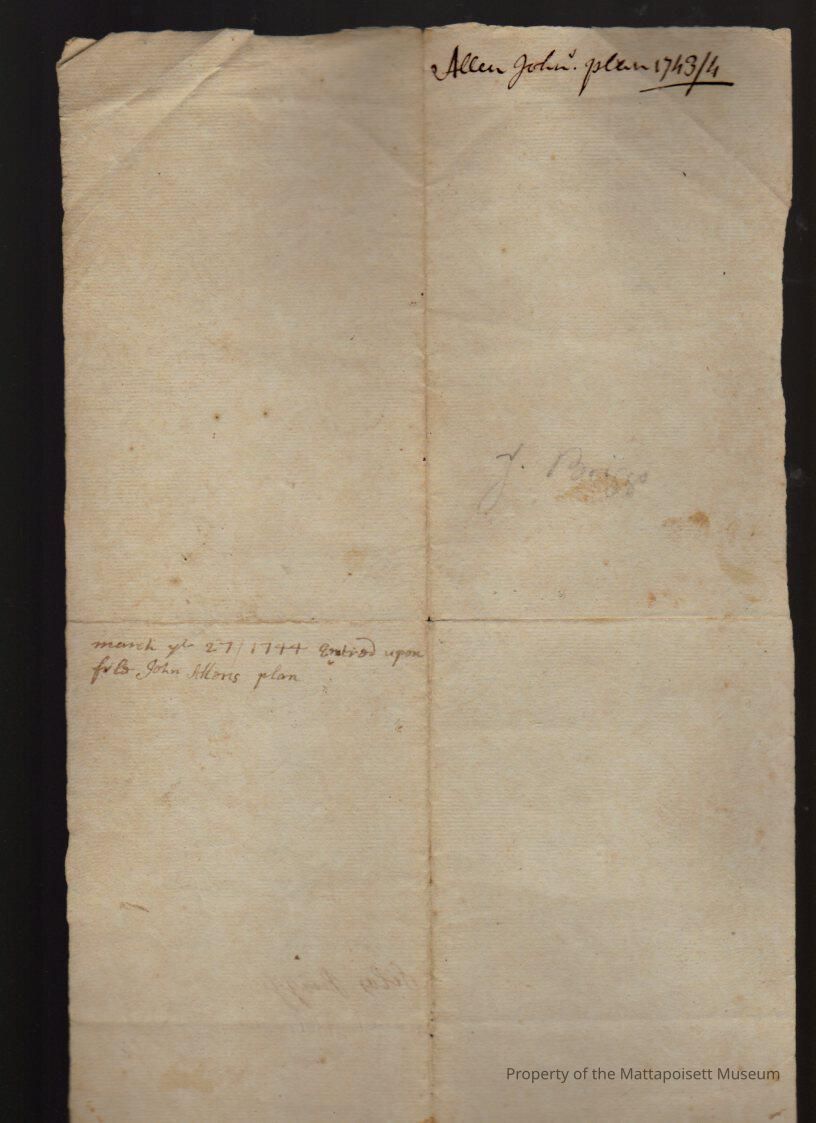 Allen John. plan 1743/4
J. Briggs
march ye 27 / 1744 Entred upon
John Allens plan
Property of the Mattapoisett Museum